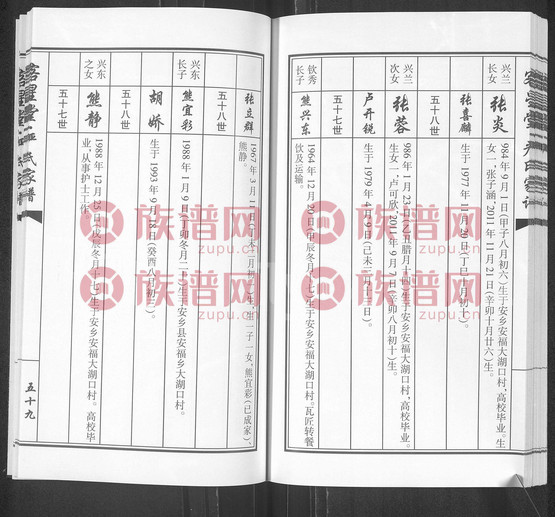 兴兰
长女
张炎
984年9月1日(甲子八月初六)生于安乡安福大湖口村,高校毕业。生
女一,张子涵,2011年11月21日(辛卯十月廿六)生。
张喜麟
生于1977年11月20日(丁巳十月初十)。
五十八世
兴兰
次女
张蓉
986年1月23日(乙丑腊月十四)生于安乡安福大湖口村,高校毕业。
生女一,卢可欣,2011年9月7日(辛卯八月初十)生。
卢开锐
生于1979年4月9日(己未三月十三日)。
五十七世
钦秀
长子
熊兴东
1964年12月20日(甲辰冬月十七)生于安乡安福大湖口村。瓦匠转餐
饮及运输。
张立群
1967年3月11日 生。生一子一女,熊宜彩(已成家)、
熊静。
五十八世
兴东
长子
熊宜彩
1988年1月9日(丁卯冬月二十)生于安乡县安福乡大湖口村。
胡娇
生于1993年9月18日(癸酉八月初三)。
五十八世
五十七世
兴东
之女
熊静
1988年12月25日(戊辰冬月十七)生于安乡安福大湖口村。高校毕
业,从事护士工作。
五十九
族谱网
zupu.cn
族谱网
zupu.cn
族谱网
zupu.cn
族谱网
zupu.cn